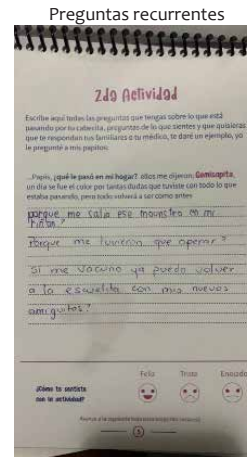 Preguntas recurrentes
2da Actividad
Escribe aquí todas las preguntas que tengas sobre lo que está
pasando por tu cabecita, preguntas de lo que sientes y que quisieras
que te respondan tus familiares o tu médico, te daré un ejemplo, yo
le pregunté a mis papitos:
...Papis, ¿qué le pasó en mi hogar? ellos me dijeron: Gomisapita,
un día se fue el color por tantas dudas que tuviste con todo lo que
estaba pasando, pero todo volverá a ser como antes
porque me salió ese mounstro en mi
riñon?
Porque me tuvieron que operar?
Si me vacuno ya puedo volver
a la escuelita con mis nuevos
amiguitos?
Feliz Triste Enojado
¿Cómo te sentiste
con la actividad?
5